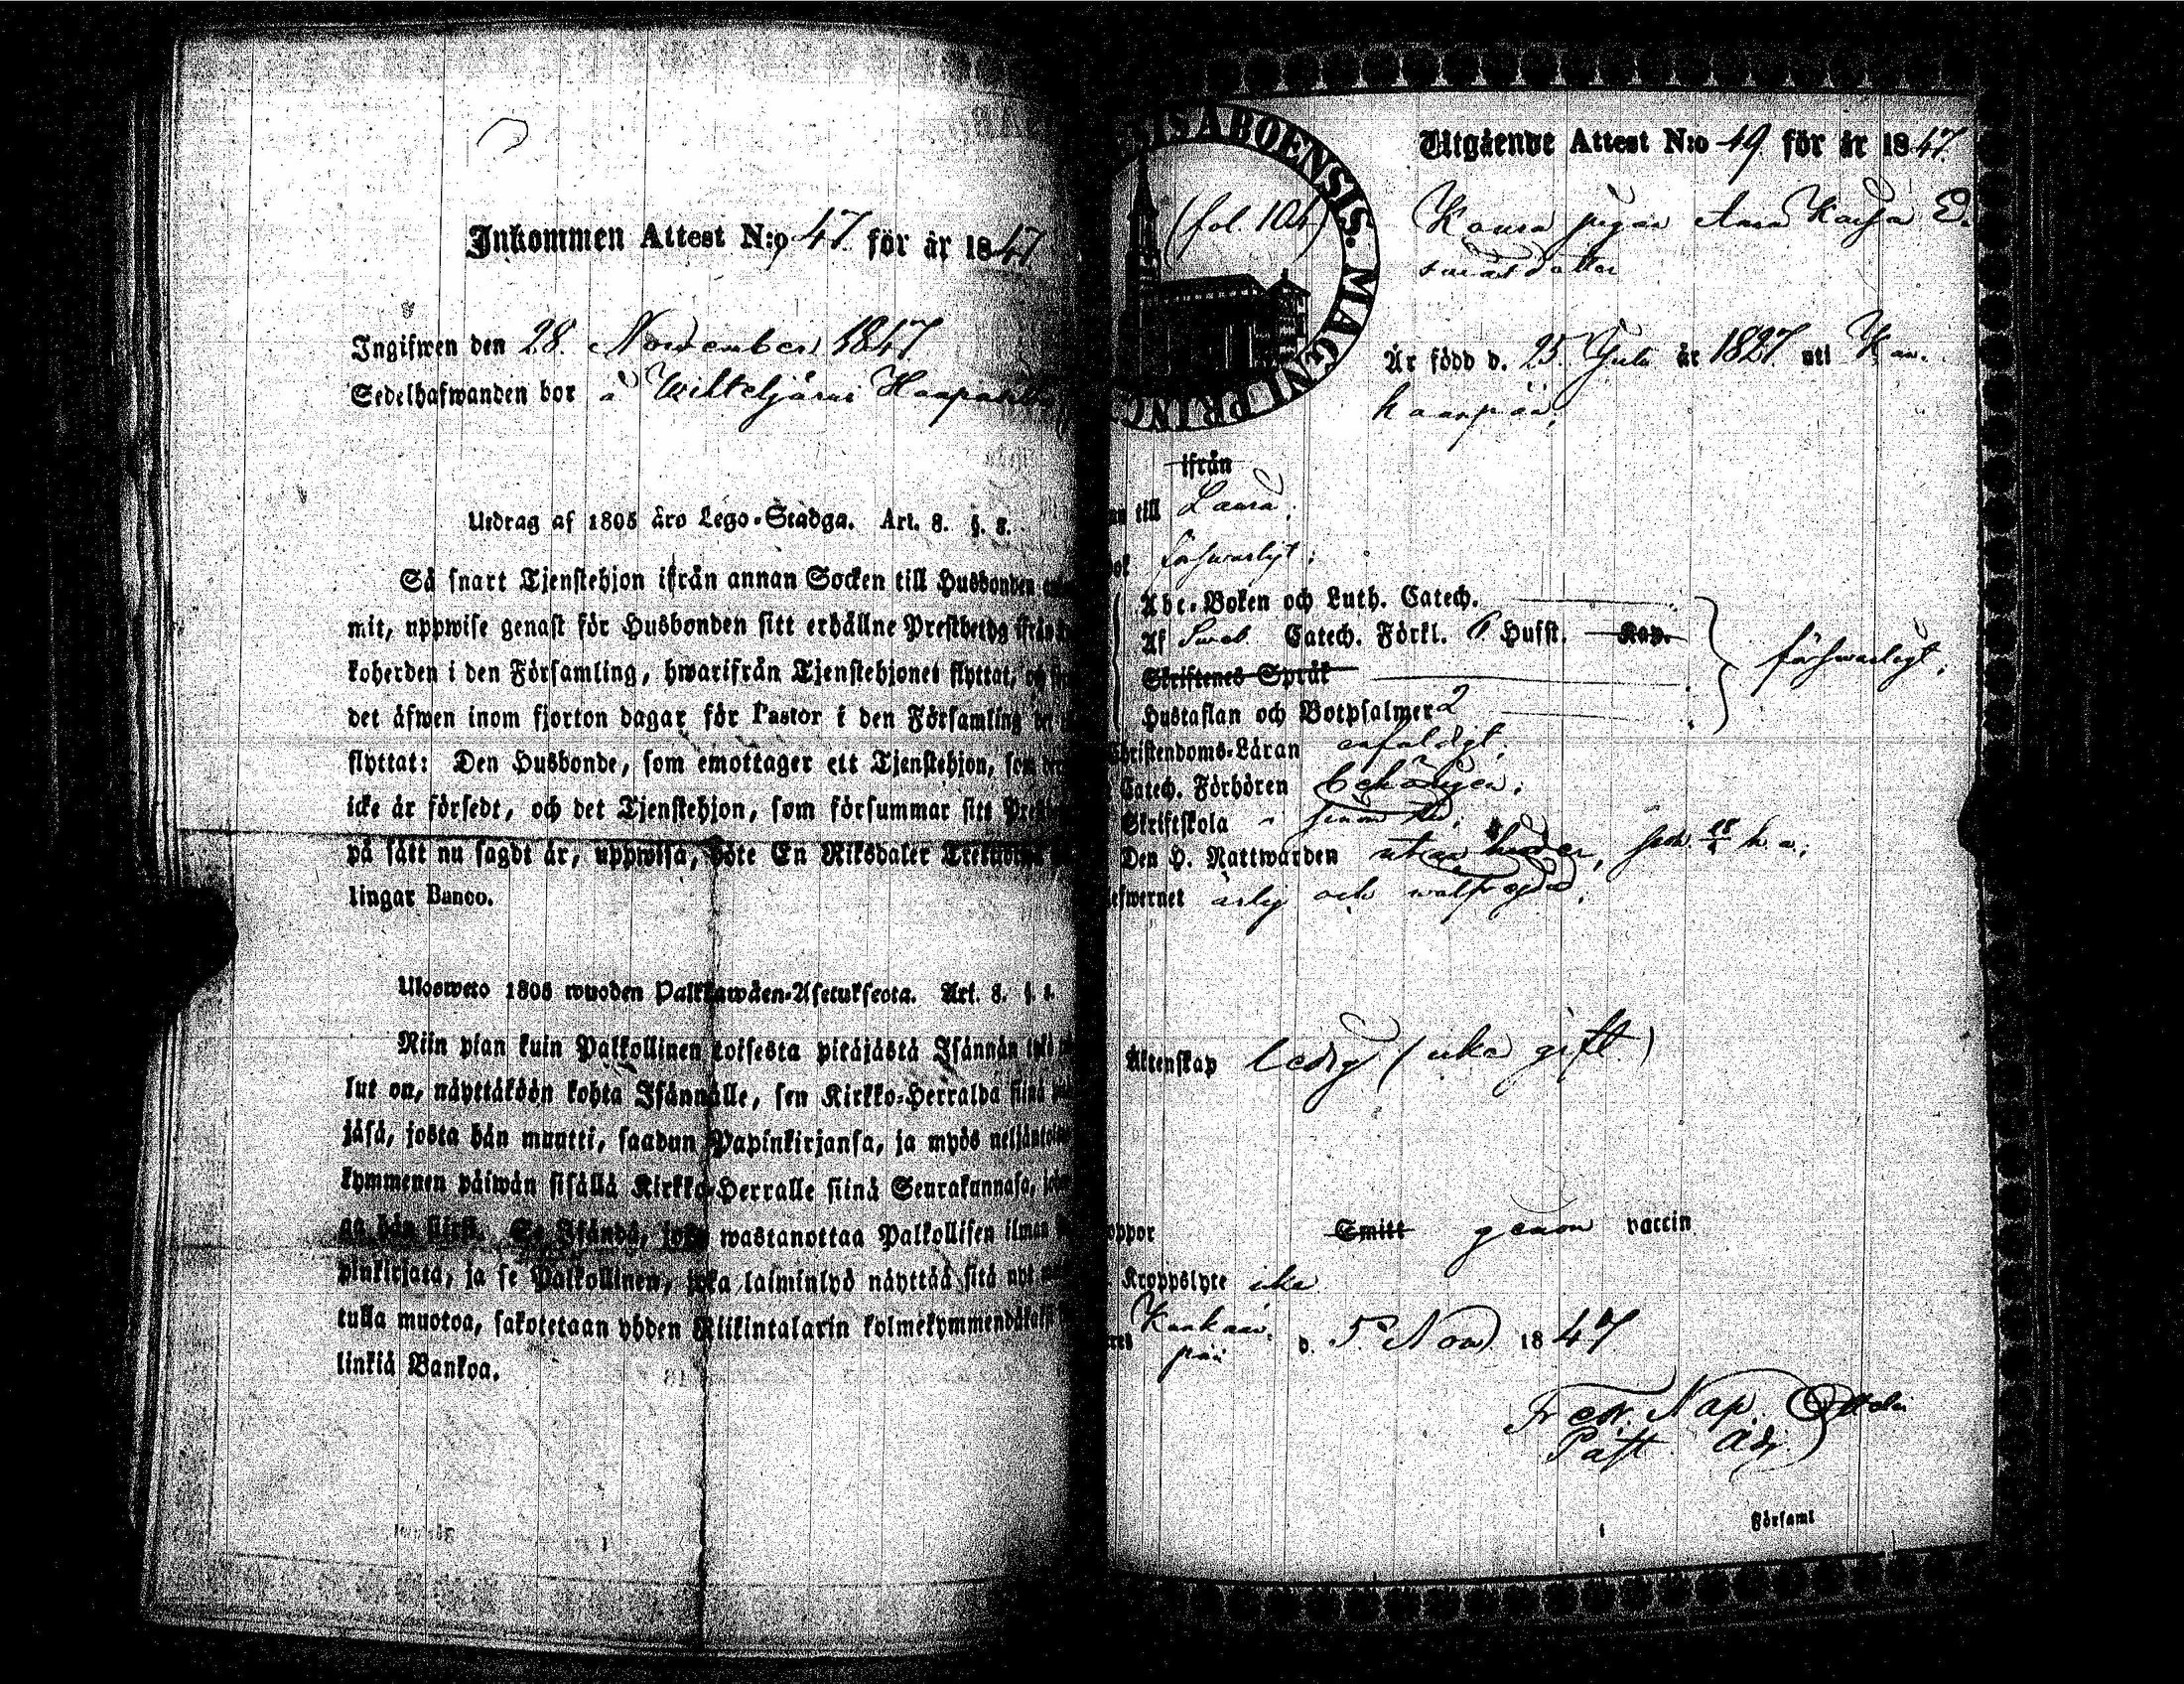 Inkommen Attest N:o 47. för år 1847.
Ingifwen den 28. November 1847
Sedelhafwanden bor å
Utdrag af 1805 års Lego-Stadga. Art. 8. §. 8.
Så snart Tjenstehjon ifrån annan Socken till Husbonden
mit, uppwise genast för Husbonden sitt erhållne Prestbetyg ifrån
koherden i den Församling, hwarifrån Tjenstehjonet flyttat,
det äfwen inom fjorton dagar för Pastor i den Församling
flyttat: Den Husbonde, som emottager ett Tjenstehjon, som
icke är försedt, och det Tjenstehjon, som försummar sitt
på sätt nu sagdt är, uppwisa, böte En Riksdaler
lingar Banco.
Ulosweto 1805 wuoden Palkkawäen-Asetuksesta. Art. 8. §. 8.
Niin pian kuin Palkollinen toisesta pitäjästä Isännän
lut on, näyttäköön kohta Isännälle, sen Kirkko-Herralda siinä
jäsä, josta hän muutti, saadun Papinkirjansa, ja myös
kymmenen päiwän sisällä Kirkko-Herralle siinä Seurakunnasa,
an hän siirsi. Se Isändä, joka wastanottaa Palkollisen ilman
pinkirjata, ja se Palkollinen, joka laiminlyö näyttää sitä nyt
tulla muotoa, sakotetaan yhden Riikintalarin
linkiä Bankoa.
ABOENSIS. MAGNI PRINC
(fol. 104)
Utgående Attest N:o 49 för år 1847.
pigan Anna Kajsa E.
Är född d. 25 Juli år 1827 uti Kan-
kaanpää,
ifrån
till
försvarligt;
Abc-Boken och Luth. Catech.
Af Sweb. Catech. Förkl. 6 Hufst. Kap.
försvarligt;
Skriftenes Språk
Hustaflan och Botpsalmer 2
Christendoms-Läran enfaldigt;
Catech. Förhören
Skriftskola
Den H. Nattwarden
efwernet ärlig och
Äktenskap ledig (icke gift.)
oppor Smitt genom vaccin
Kroppslyte icke
Kankaan-
pää d. 5 Nov 1847
Fredr. Nap.
Past. Adj.
Församl